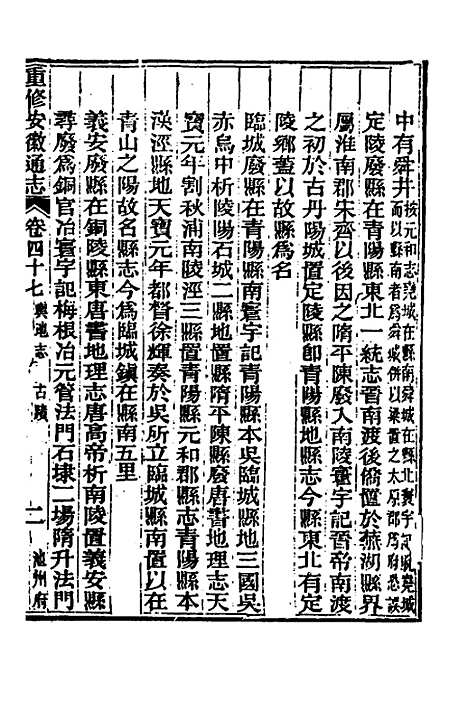 中有舜井按元和志堯城在縣南舜城在縣北寰宇記以堯城
而以縣南者為舜城併以梁置之太原郡為府恐誤
定陵廢縣在青陽縣東北一統志晉南渡後僑置於蕪湖縣界
屬淮南郡宋齊以後因之隋平陳廢入南陵寰宇記晉帝南渡
之初於古丹陽城置定陵縣卽青陽縣地縣志今縣東北有定
陵鄉蓋以故縣為名
臨城廢縣在青陽縣南寰宇記青陽縣本吳臨城縣地三國吳
赤烏中析陵陽石城二縣地置縣隋平陳縣廢唐書地理志天
寶元年割秋浦南陵涇三縣置青陽縣元和郡縣志青陽縣本
漢涇縣地天寶元年都督徐輝奏於吳所立臨城縣南置以在
青山之陽故名縣志今為臨城鎮在縣南五里
義安廢縣在銅陵縣東唐書地理志唐高帝析南陵置義安縣
尋廢為銅官冶寰宇記梅根冶元管法門石埭二場隋升法門
重修安徽通志 卷四十七 輿地志 古蹟 二 池州府